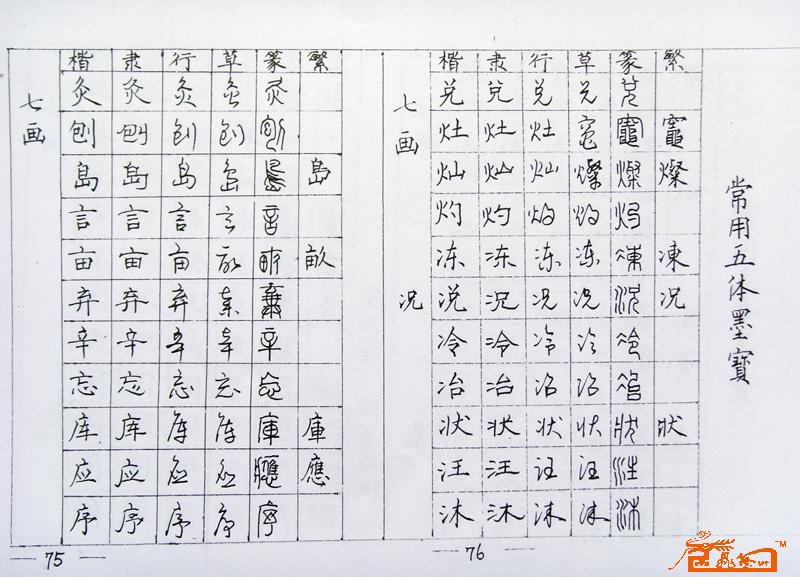 七画
楷 隶 行 草 篆 繁
灸 灸 灸 灸 灸
刨 刨 刨 刨 刨
島 島 島 島 島 島
言 言 言 言 言
亩 亩 亩 畝 畝 畝
弃 弃 弃 棄 棄
辛 辛 辛 辛 辛
忘 忘 忘 忘 忘
库 库 库 库 庫 庫
应 应 应 应 應 應
序 序 序 序 序
75
七画
况
楷 隶 行 草 篆 繁
兑 兑 兑 兑 兑
灶 灶 灶 竈 竈 竈
灿 灿 灿 燦 燦 燦
灼 灼 灼 灼 灼
冻 冻 冻 冻 凍 凍
说 况 况 况 况 况
冷 冷 冷 冷 冷
冶 冶 冶 冶 冶
状 状 状 状 狀 狀
汪 汪 汪 汪 汪
沐 沐 沐 沐 沐
76
常用五体墨寶